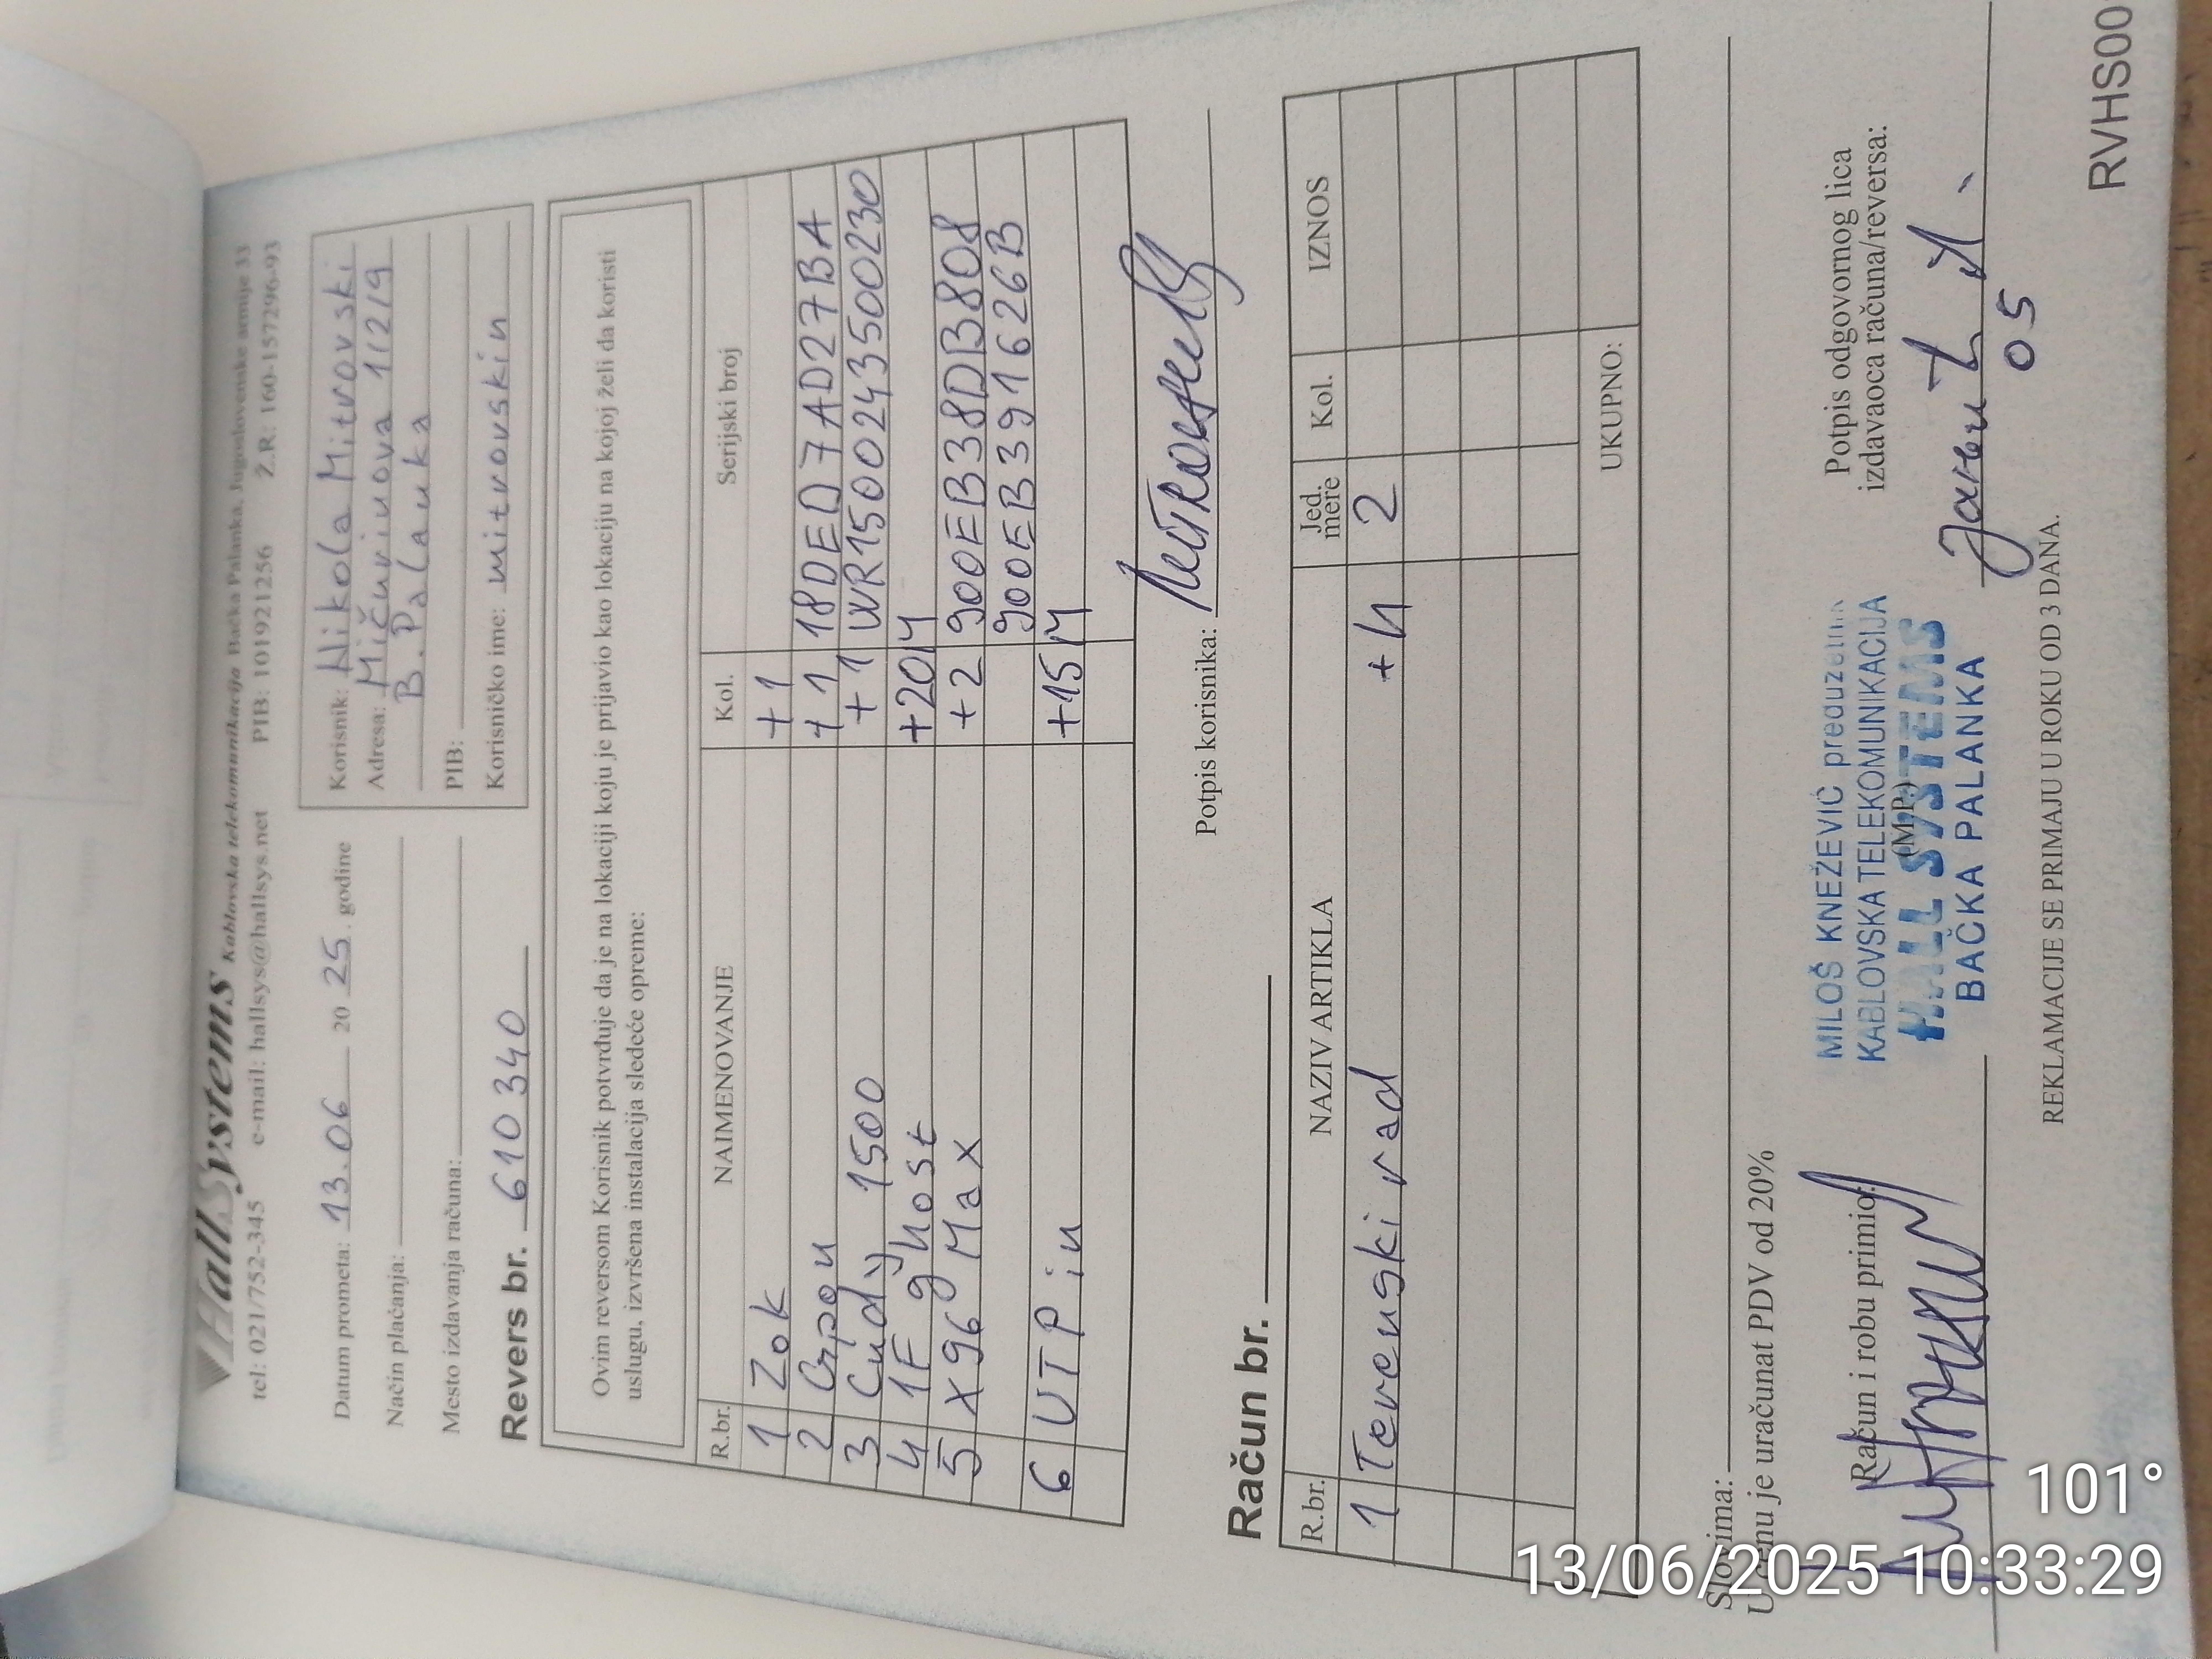 HallSystems Kablovska telekomunikacija Bačka Palanka, Jugoslovenske armije 33
tel: 021/752-345 e-mail: hallsys@hallsys.net PIB: 101921256 Ž.R: 160-157296-93
Datum prometa: 13.06 20 25. godine
Način plaćanja:
Mesto izdavanja računa:
Revers br. 610340
Korisnik: Nikola Mitrovski
Adresa: Mičurinova 112/9
B. Palanka
PIB:
Korisničko ime: mitrovskin
Ovim reversom Korisnik potvrđuje da je na lokaciji koju je prijavio kao lokaciju na kojoj želi da koristi
uslugu, izvršena instalacija sledeće opreme:
R.br. NAIMENOVANJE Kol. Serijski broj
1 Zok +1
2 Crpon +1 18DED7AD27BA
3 Cudy 1500 +1 WR1500243500230
4 1F gnost +20M
5 X96 Max +2 900EB38DB808
900EB391626B
6 UTP in +15M
Potpis korisnika:
Račun br.
R.br. NAZIV ARTIKLA Jed. mere Kol. IZNOS
1 Terenski rad +4 2
UKUPNO:
Slovima:
U cenu je uračunat PDV od 20%
Račun i robu primio:
MILOŠ KNEŽEVIĆ preduzetnik
KABLOVSKA TELEKOMUNIKACIJA
(MP)
HALL SYSTEMS
BAČKA PALANKA
Potpis odgovornog lica
izdavaoca računa/reversa:
05
REKLAMACIJE SE PRIMAJU U ROKU OD 3 DANA.
RVHS00
101°
13/06/2025 10:33:29